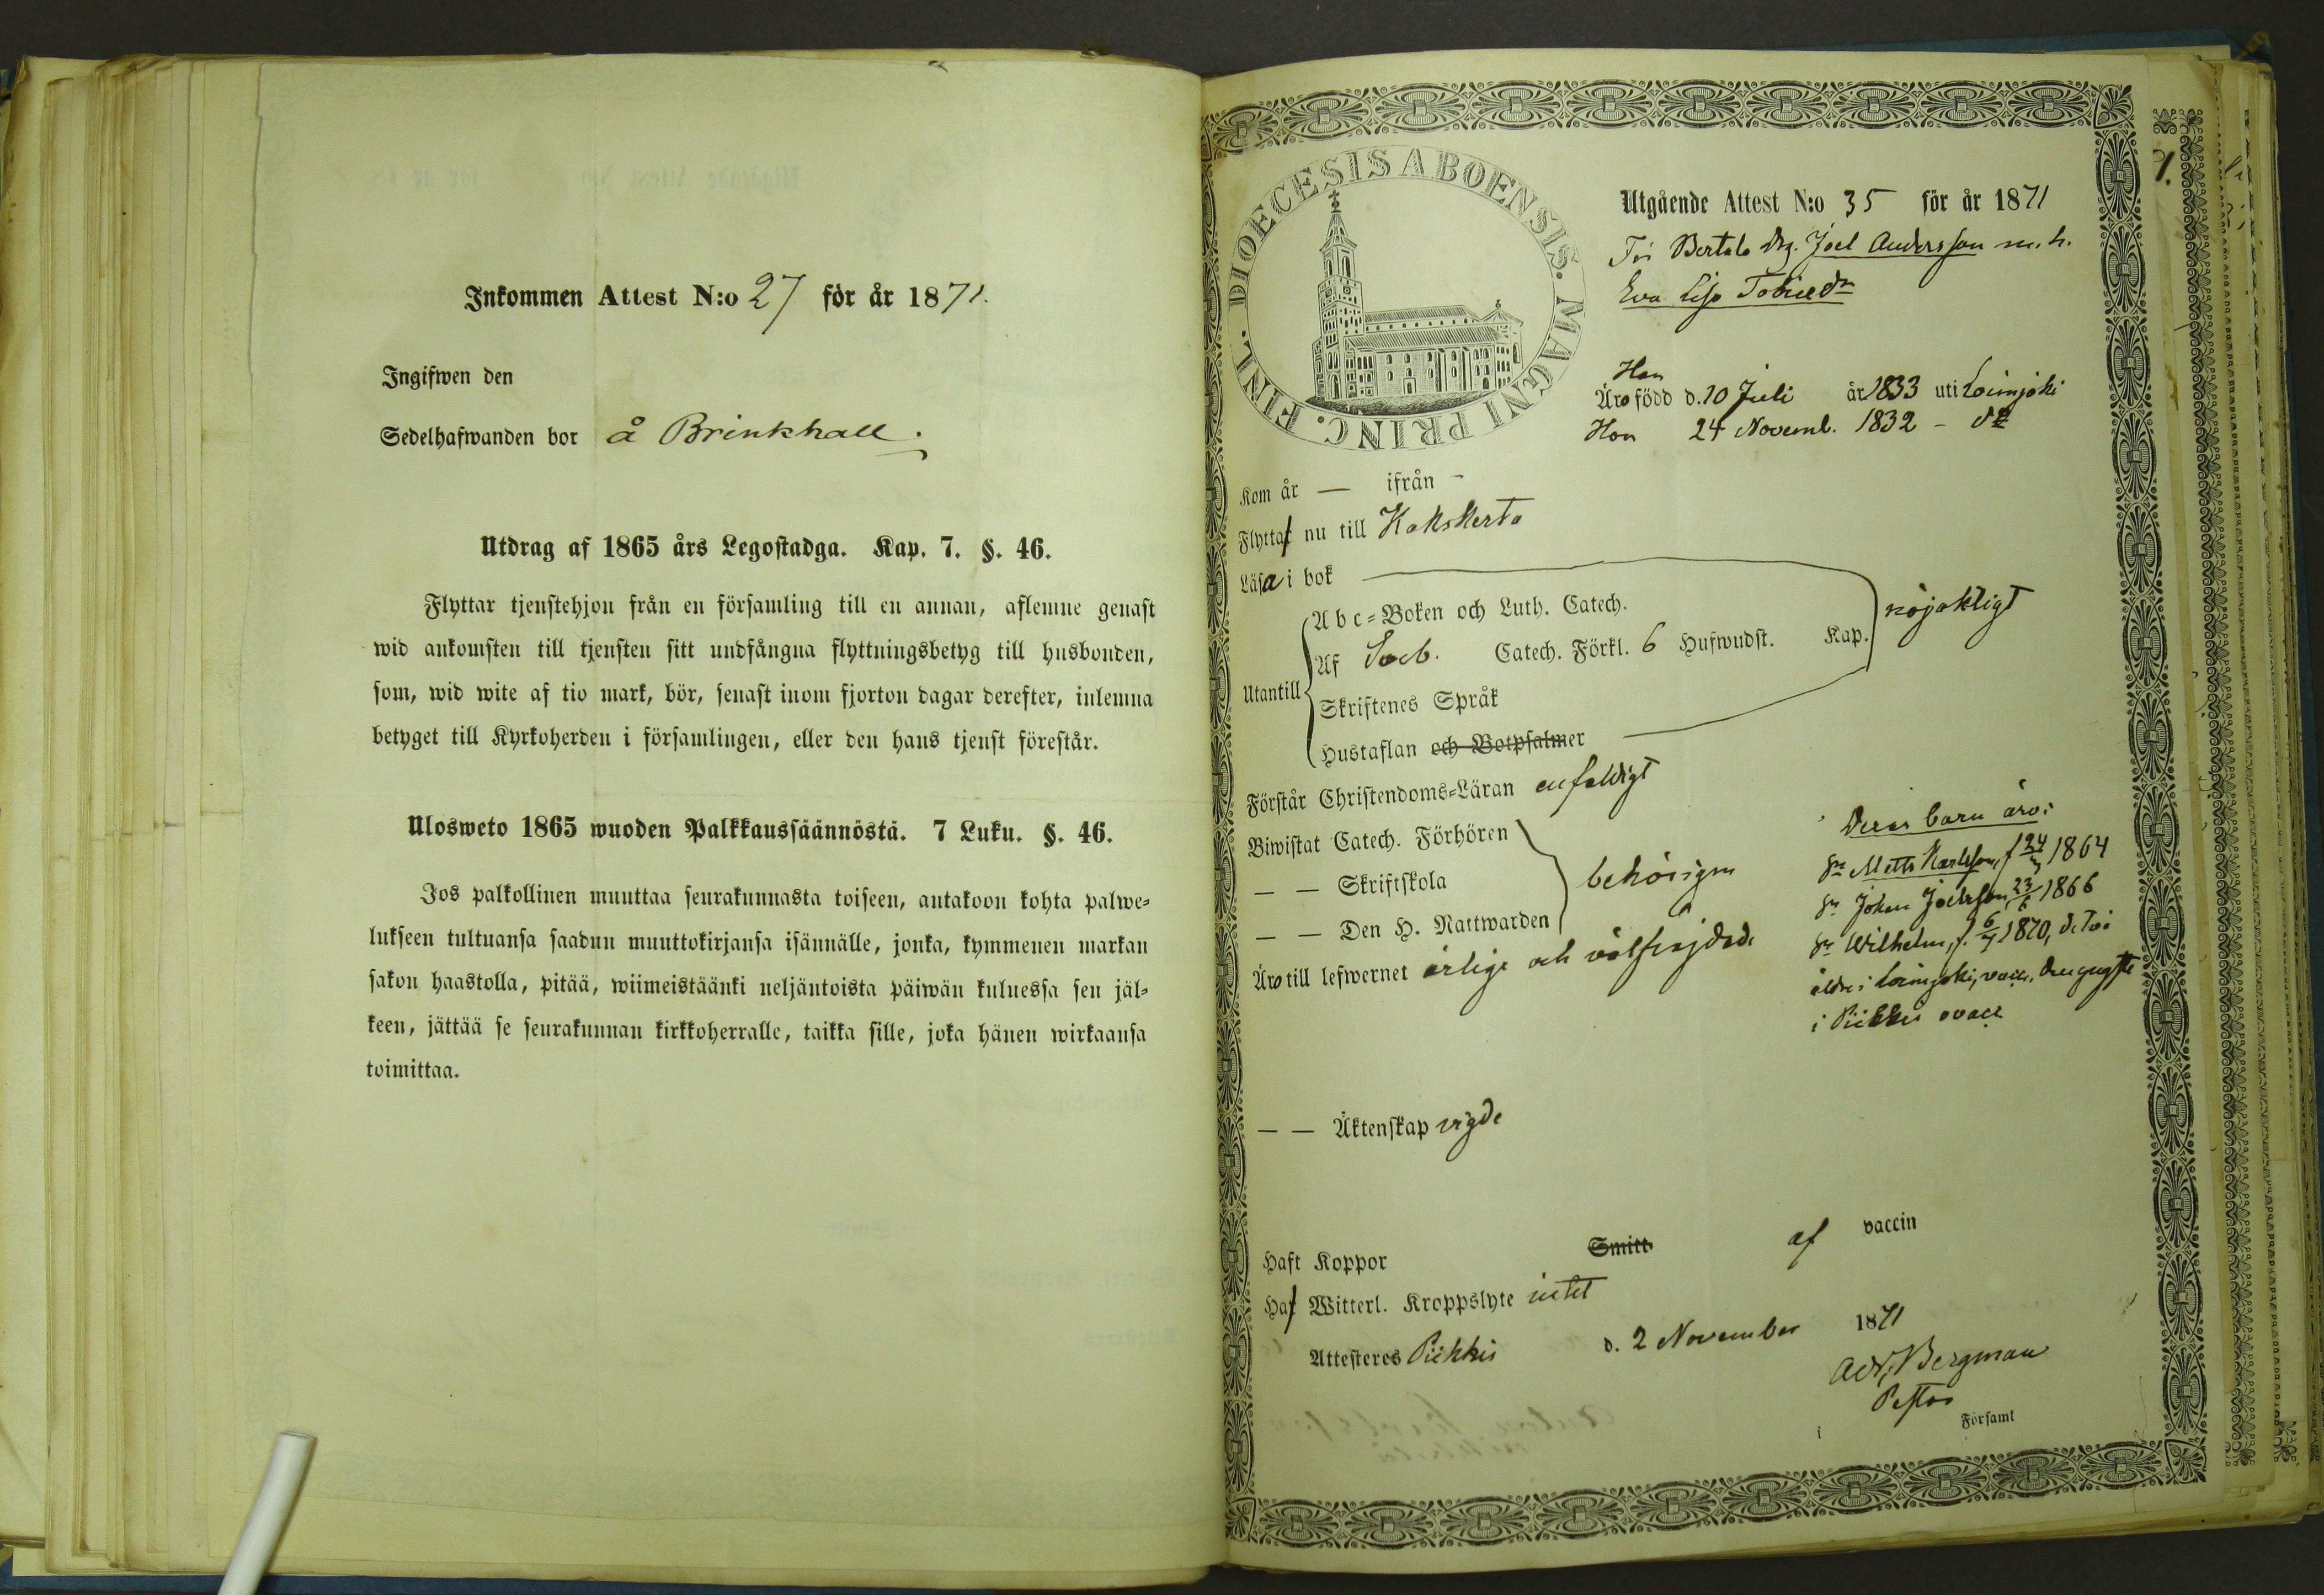 Inkommen Attest N:o 27 för år 1871.
Ingifwen den
Sedelhafwanden bor å Brinkhall.
Utdrag af 1865 års Legostadga. Kap. 7. §. 46.
Flyttar tjenstehjon från en församling till en annan, aflemne genast
wid ankomsten till tjensten sitt undfångna flyttningsbetyg till husbonden,
som, wid wite af tio mark, bör, senast inom fjorton dagar derefter, inlemna
betyget till Kyrkoherden i församlingen, eller den hans tjenst förestår.
Ulosweto 1865 wuoden Palkkaussäännöstä. 7 Luku. §. 46.
Jos palkollinen muuttaa seurakunnasta toiseen, antakoon kohta palwe-
lukseen tultuansa saadun muuttokirjansa isännälle, jonka, kymmenen markan
sakon haastolla, pitää, wiimeistäänki neljäntoista päiwän kuluessa sen jäl-
keen, jättää se seurakunnan kirkkoherralle, taikka sille, joka hänen wirkaansa
toimittaa.
DIOECESIS ABOENSIS. MAGNI PRINC. FINL.
Utgående Attest N:o 35 för år 1871
Joel Andersson m. h.
Eva Lisa
Han
Äro född d. 10 Juli år 1833 uti Loimjoki
Hon 24 Novemb. 1832 - do
Kom år — ifrån -
Flytta nu till Kakskerta
Läsa i bok
Abc-Boken och Luth. Catech.
Utantill
Af Catech. Förkl. 6 Hufwudst. Kap. nöjaktigt
Skriftenes Språk
Hustaflan och Botpsalmer
Förstår Christendoms-Läran enfaldigt
Biwistat Catech. Förhören
— — Skriftskola behörigen
— — Den H. Nattwarden
Äro till lefwernet ärlige och välfrejdade
Deras barn äro:
Matts Karlsson, f 24 1864
Johan Joelsson, 23 1866
Wilhelm, f. 6/7 1870, de två
äldre i Loimjoki, vacc., den yngste
i Piikkis ovacc
— — Äktenskap vigde
Haft Koppor Smitt af vaccin
Haf Witterl. Kroppslyte intet
Attesteres Piikkis d. 2 November 1871
Bergman
Pastor
i Församl